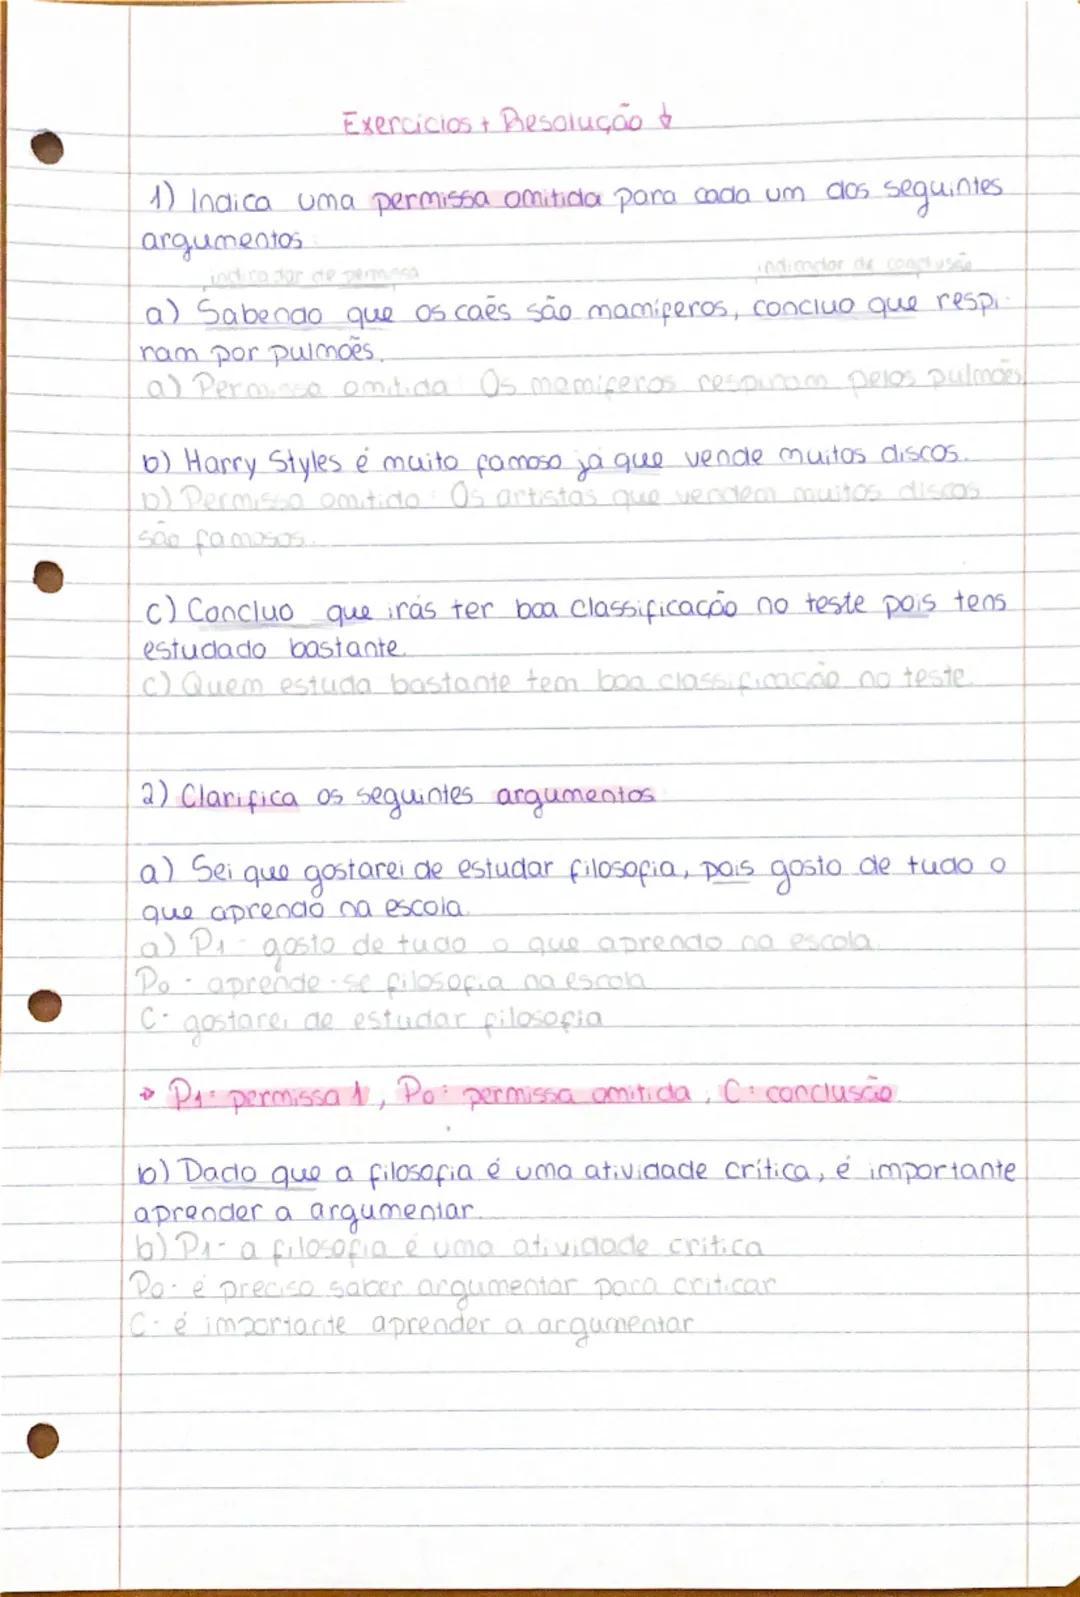 Exercicios + Resolução ↓
1) Indica uma permissa omitida para cada um dos seguintes
argumentos
indicador de permissa indicador de conclusão
a) Sabendo que os caẽs são mamíferos, concluo que respi-
ram por pulmoẽs.
a) Permissa omitida: Os mamiferos respiram pelos pulmoẽs
b) Harry Styles é muito famoso já que vende muitos discos.
b) Permissa omitida: Os artistas que vendem muitos discos
são famosos.
c) Concluo que irás ter boa classificação no teste pois tens
estudado bastante.
c) Quem estuda bastante tem boa classificação no teste.
2) Clarifica os seguintes argumentos
a) Sei que gostarei de estudar filosofia, pois gosto de tudo o
que aprendo na escola.
a) P1 - gosto de tudo o que aprendo na escola.
P0 - aprende-se filosofia na escola
C - gostarei de estudar filosofia
→ P1: permissa 1, P0: permissa omitida, C: conclusão
b) Dado que a filosofia é uma atividade crítica, é importante
aprender a argumentar.
b) P1 - a filosofia é uma atividade critica
P0 - é preciso saber argumentar para criticar
C - é importante aprender a argumentar